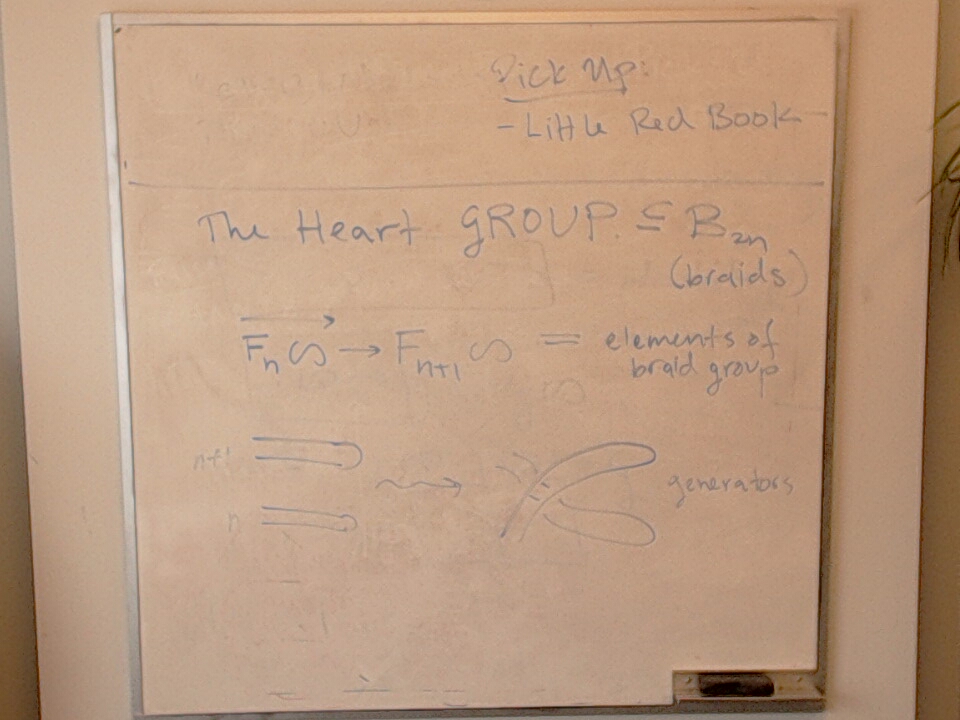 Pick Up:
- Little Red Book
The Heart GROUP. ⊆ B₂ₙ
(braids)
Fₙ ∽ → Fₙ₊₁ ∽ = elements of
braid group
n+1
n
generators